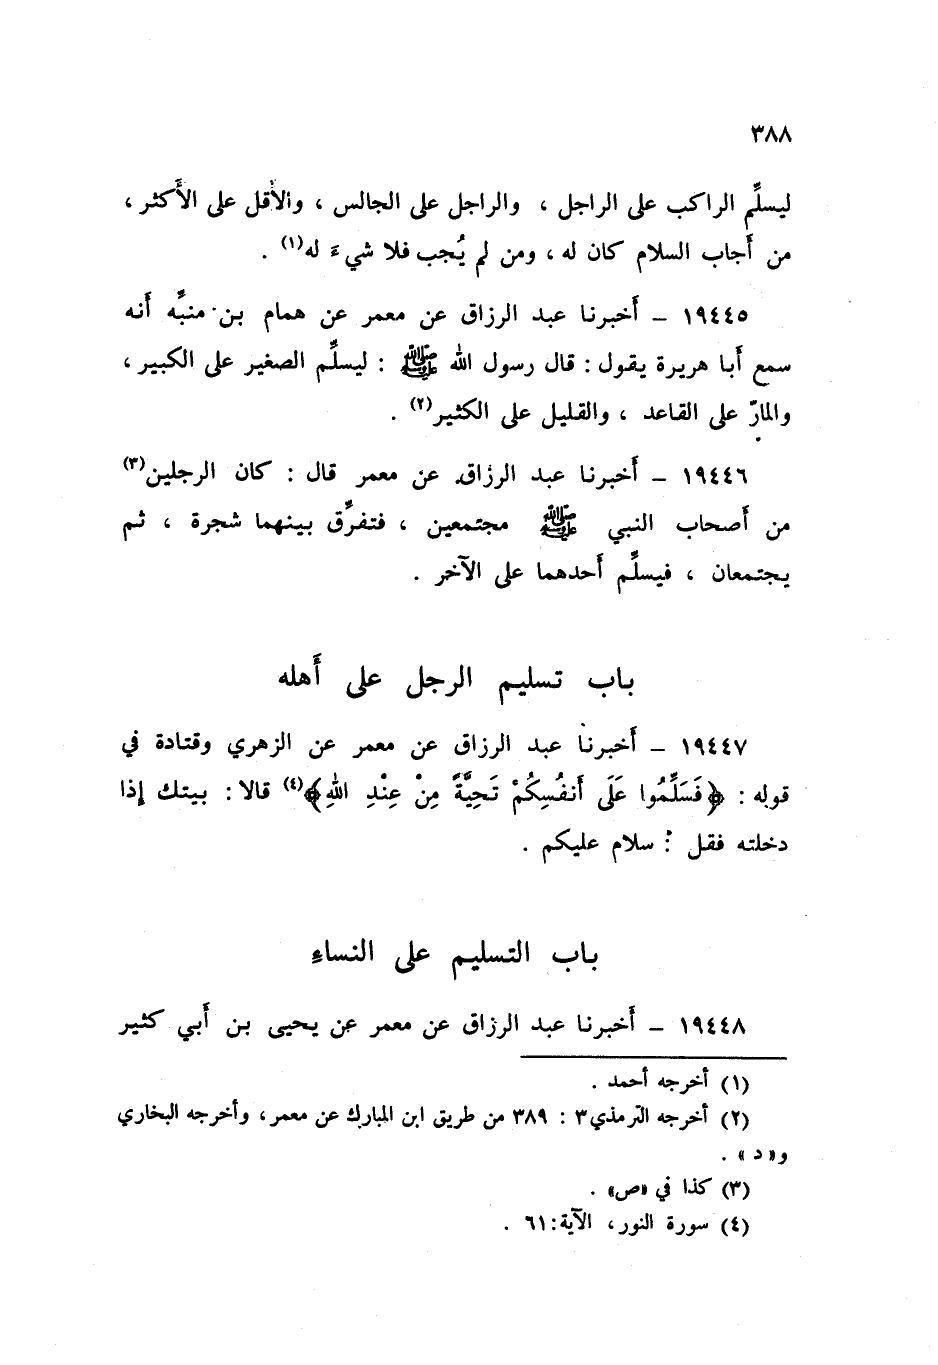 ٣٨٨
ليسلِّم الراكب على الراجل ، والراجل على الجالس ، والأقل على الأكثر ،
من أجاب السلام كان له ، ومن لم يُجب فلا شيءَ له(١) .
١٩٤٤٥ – أخبرنا عبد الرزاق عن معمر عن همام بن منبِّه أنه
سمع أبا هريرة يقول : قال رسول الله ﷺ : ليسلِّم الصغير على الكبير ،
والمارّ على القاعد ، والقليل على الكثير(٢) .
١٩٤٤٦ – أخبرنا عبد الرزاق عن معمر قال : كان الرجلين(٣)
من أصحاب النبي ﷺ مجتمعين ، فتفرِّق بينهما شجرة ، ثم
يجتمعان ، فيسلِّم أحدهما على الآخر .
باب تسليم الرجل على أهله
١٩٤٤٧ – أخبرنا عبد الرزاق عن معمر عن الزهري وقتادة في
قوله : ﴿فَسَلِّمُوا عَلَى أَنفُسِكُمْ تَحِيَّةً مِنْ عِنْدِ اللهِ﴾(٤) قالا : بيتك إذا
دخلته فقل : سلام عليكم .
باب التسليم على النساءِ
١٩٤٤٨ – أخبرنا عبد الرزاق عن معمر عن يحيى بن أبي كثير
(١) أخرجه أحمد .
(٢) أخرجه الترمذي ٣ : ٣٨٩ من طريق ابن المبارك عن معمر ، وأخرجه البخاري
و«د» .
(٣) كذا في «ص» .
(٤) سورة النور ، الآية : ٦١ .